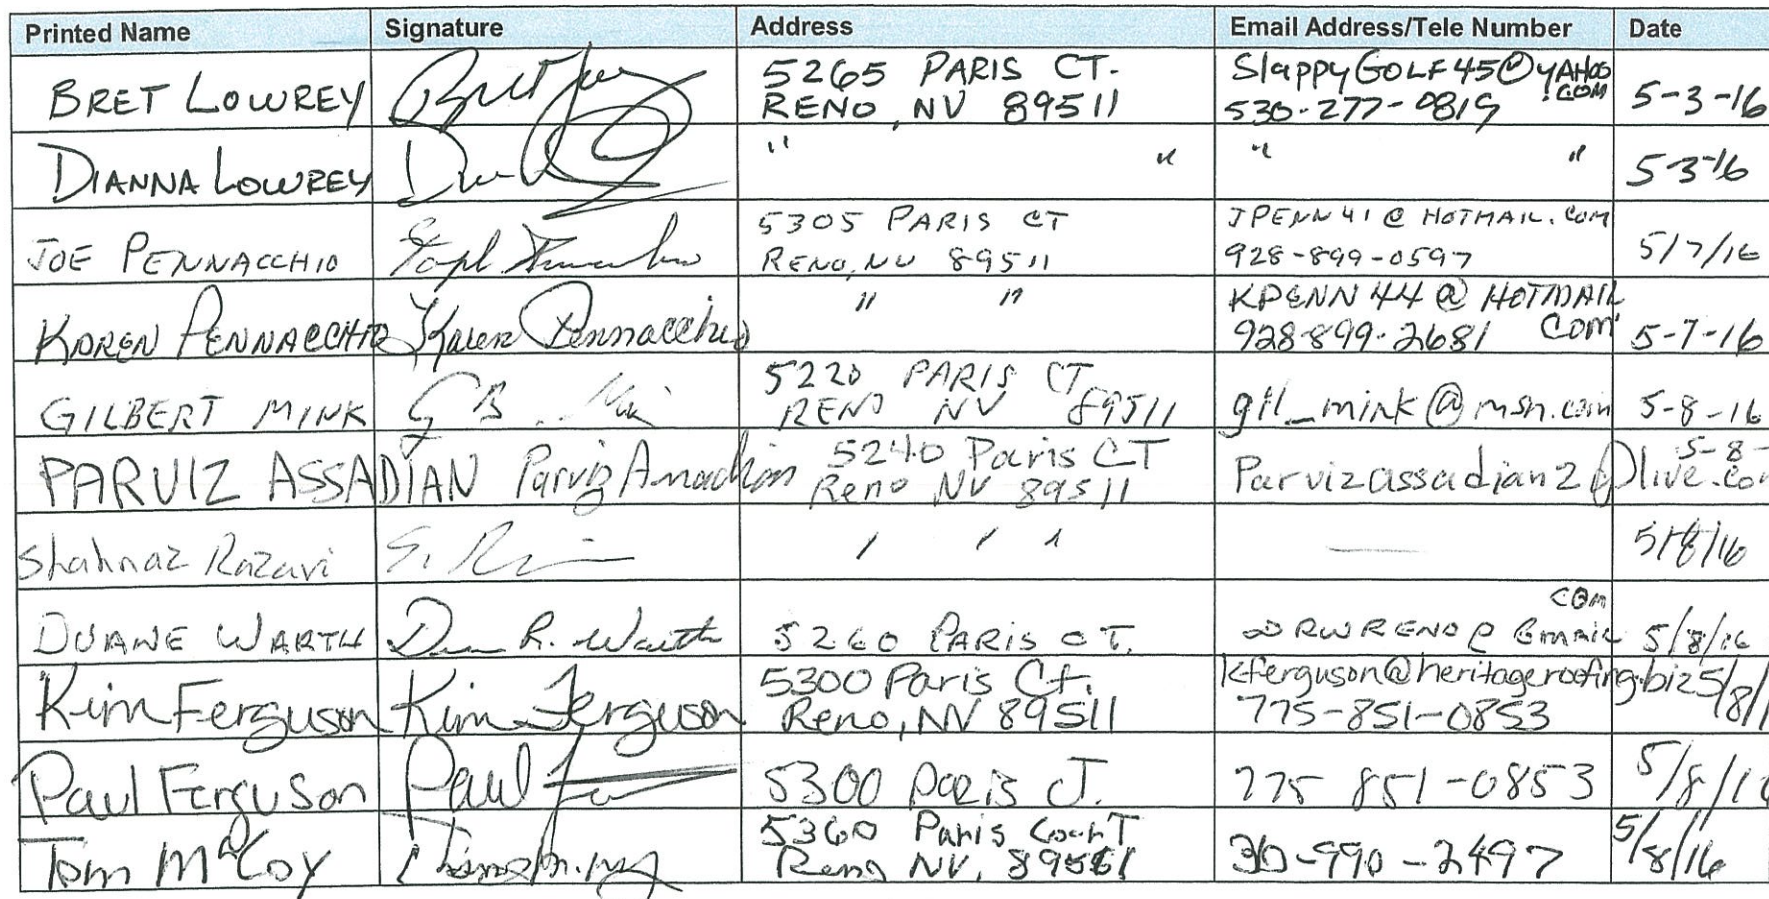 Printed Name Signature Address Email Address/Tele Number Date
BRET LOWREY 5265 PARIS CT. SlappyGOLF45@YAHOO
RENO, NV 89511 .COM
530-277-0819 5-3-16
DIANNA LOWREY " " " " 5-3-16
JOE PENNACCHIO 5305 PARIS CT JPENN41@HOTMAIL.COM
RENO, NV 89511 928-899-0597 5/7/16
KAREN PENNACCHIO Karen Pennacchio " " KPENN44@HOTMAIL
928-899-2681 COM 5-7-16
GILBERT MINK 5220 PARIS CT
RENO NV 89511 gil_mink@msn.com 5-8-16
PARVIZ ASSADIAN Parviz Assadian 5240 Paris CT 5-8-
Reno NV 89511 Parvizassadian2@live.com
Shahnaz Razavi " " " — 5/8/16
COM
DUANE WARTH R. Warth 5260 PARIS CT. DRWRENO@GMAIL 5/8/16
Kim Ferguson Kim Ferguson 5300 Paris Ct. kferguson@heritageroofing.biz 5/8/1
Reno, NV 89511 775-851-0853
Paul Ferguson Paul 5300 Paris Ct. 775 851-0853 5/8/16
Tom McCoy 5360 Paris Court 5/8/16
Reno NV,